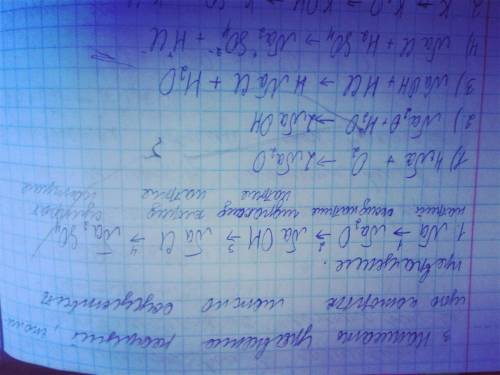 3 Написать уравнение реакций, с помо
щью которых можно осуществит
превращение.
1. Na →¹ Na₂O →² NaOH →³ NaCl →⁴ Na₂SO₄
натрий оксид натрия гидроксид натрия хлорид натрия сульфат натрия
1) 4Na + O₂ → 2Na₂O
2) Na₂O + H₂O → 2NaOH
3) NaOH + HCl → NaCl + H₂O
4) NaCl + H₂SO₄ → Na₂SO₄ + HCl